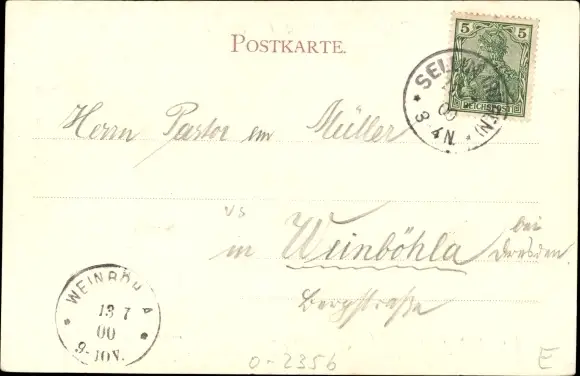 POSTKARTE.
5 5
REICHSPOST
SELLIN (RÜGEN)
00
3-4N.
Herrn Pastor em Müller
vs
in Weinböhla bei Dresden.
Bergstraße
WEINBÖHLA
13 7
00
9-10V.
0-2356
E